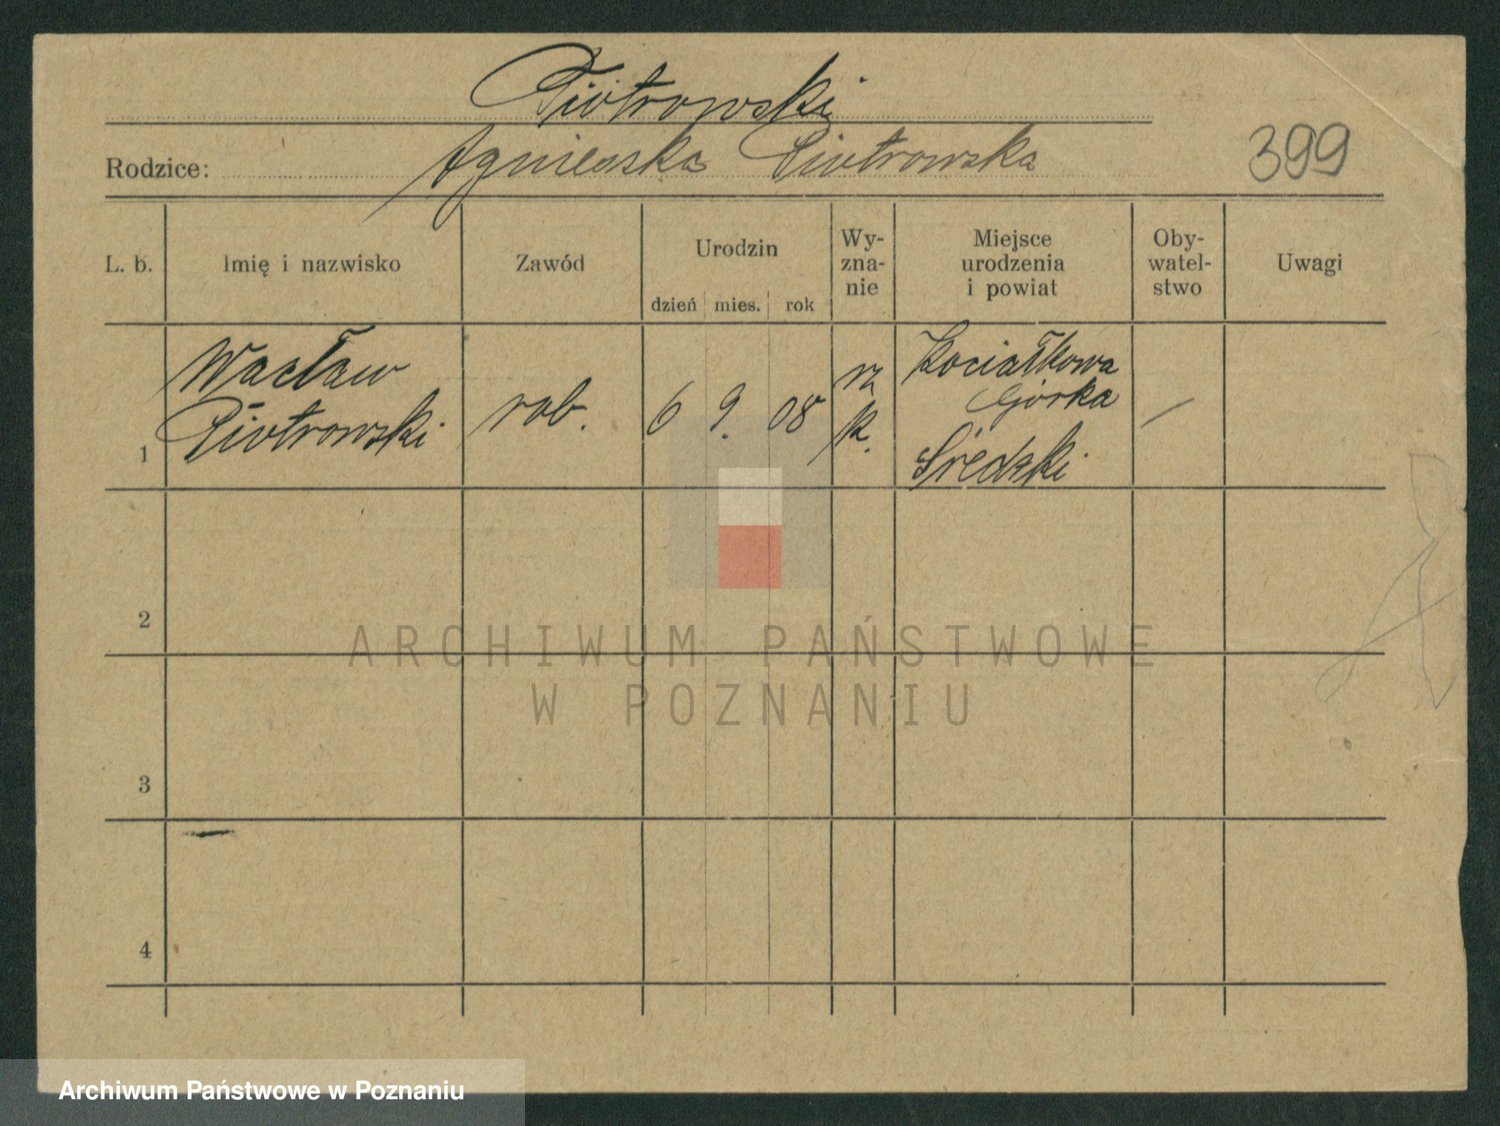 Piotrowski
Rodzice: Agnieszka Piotrowska 399
L. b. Imię i nazwisko Zawód Urodzin dzień mies. rok Wy-zna-nie Miejsce urodzenia i powiat Oby-watel-stwo Uwagi
Wacław
Piotrowski
1
rob.
6 9. 08
rz
k.
Kociałkowa
Górka
Średzki
—
2
3
4
ARCHIWUM PAŃSTWOWE
W POZNANIU
Archiwum Państwowe w Poznaniu